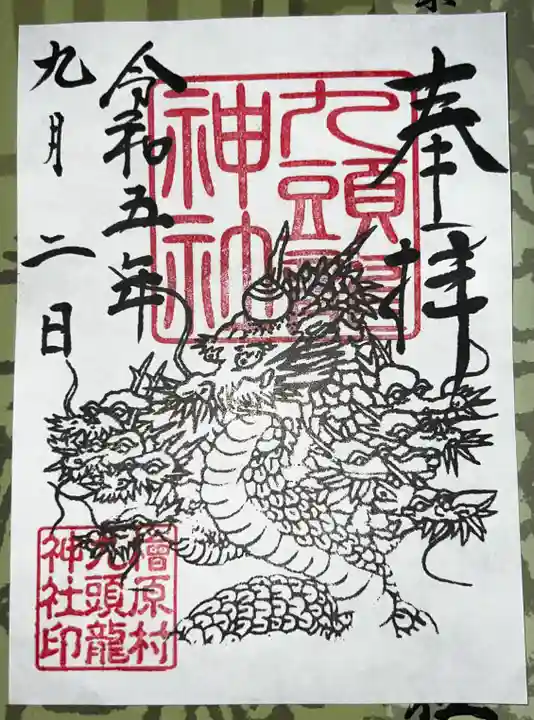 奉拝
九頭龍
神社
令和五年
九月二日
檜原村
九頭龍
神社印